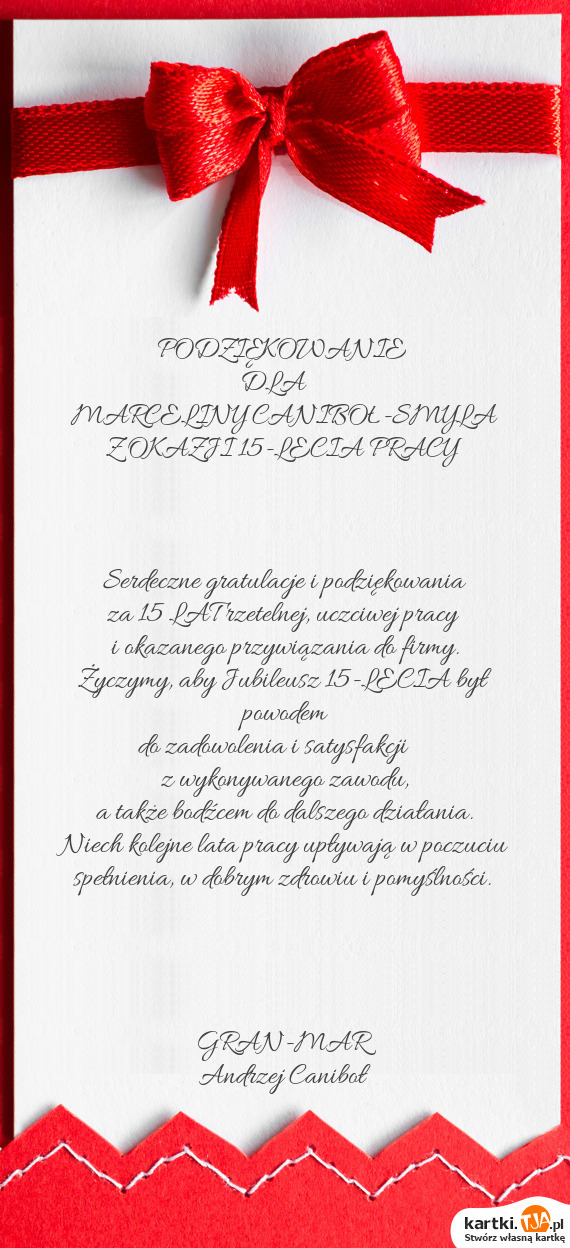 PODZIĘKOWANIE
DLA
MARCELINY CANIBOŁ -SMYLA
Z OKAZJI 15 -LECIA PRACY
Serdeczne gratulacje i podziękowania
za 15 LAT rzetelnej, uczciwej pracy
i okazanego przywiązania do firmy.
Życzymy, aby Jubileusz 15 -LECIA był
powodem
do zadowolenia i satysfakcji
z wykonywanego zawodu,
a także bodźcem do dalszego działania.
Niech kolejne lata pracy upływają w poczuciu
spełnienia, w dobrym zdrowiu i pomyślności.
GRAN -MAR
Andrzej Caniboł
kartki.TJA.pl
Stwórz własną kartkę